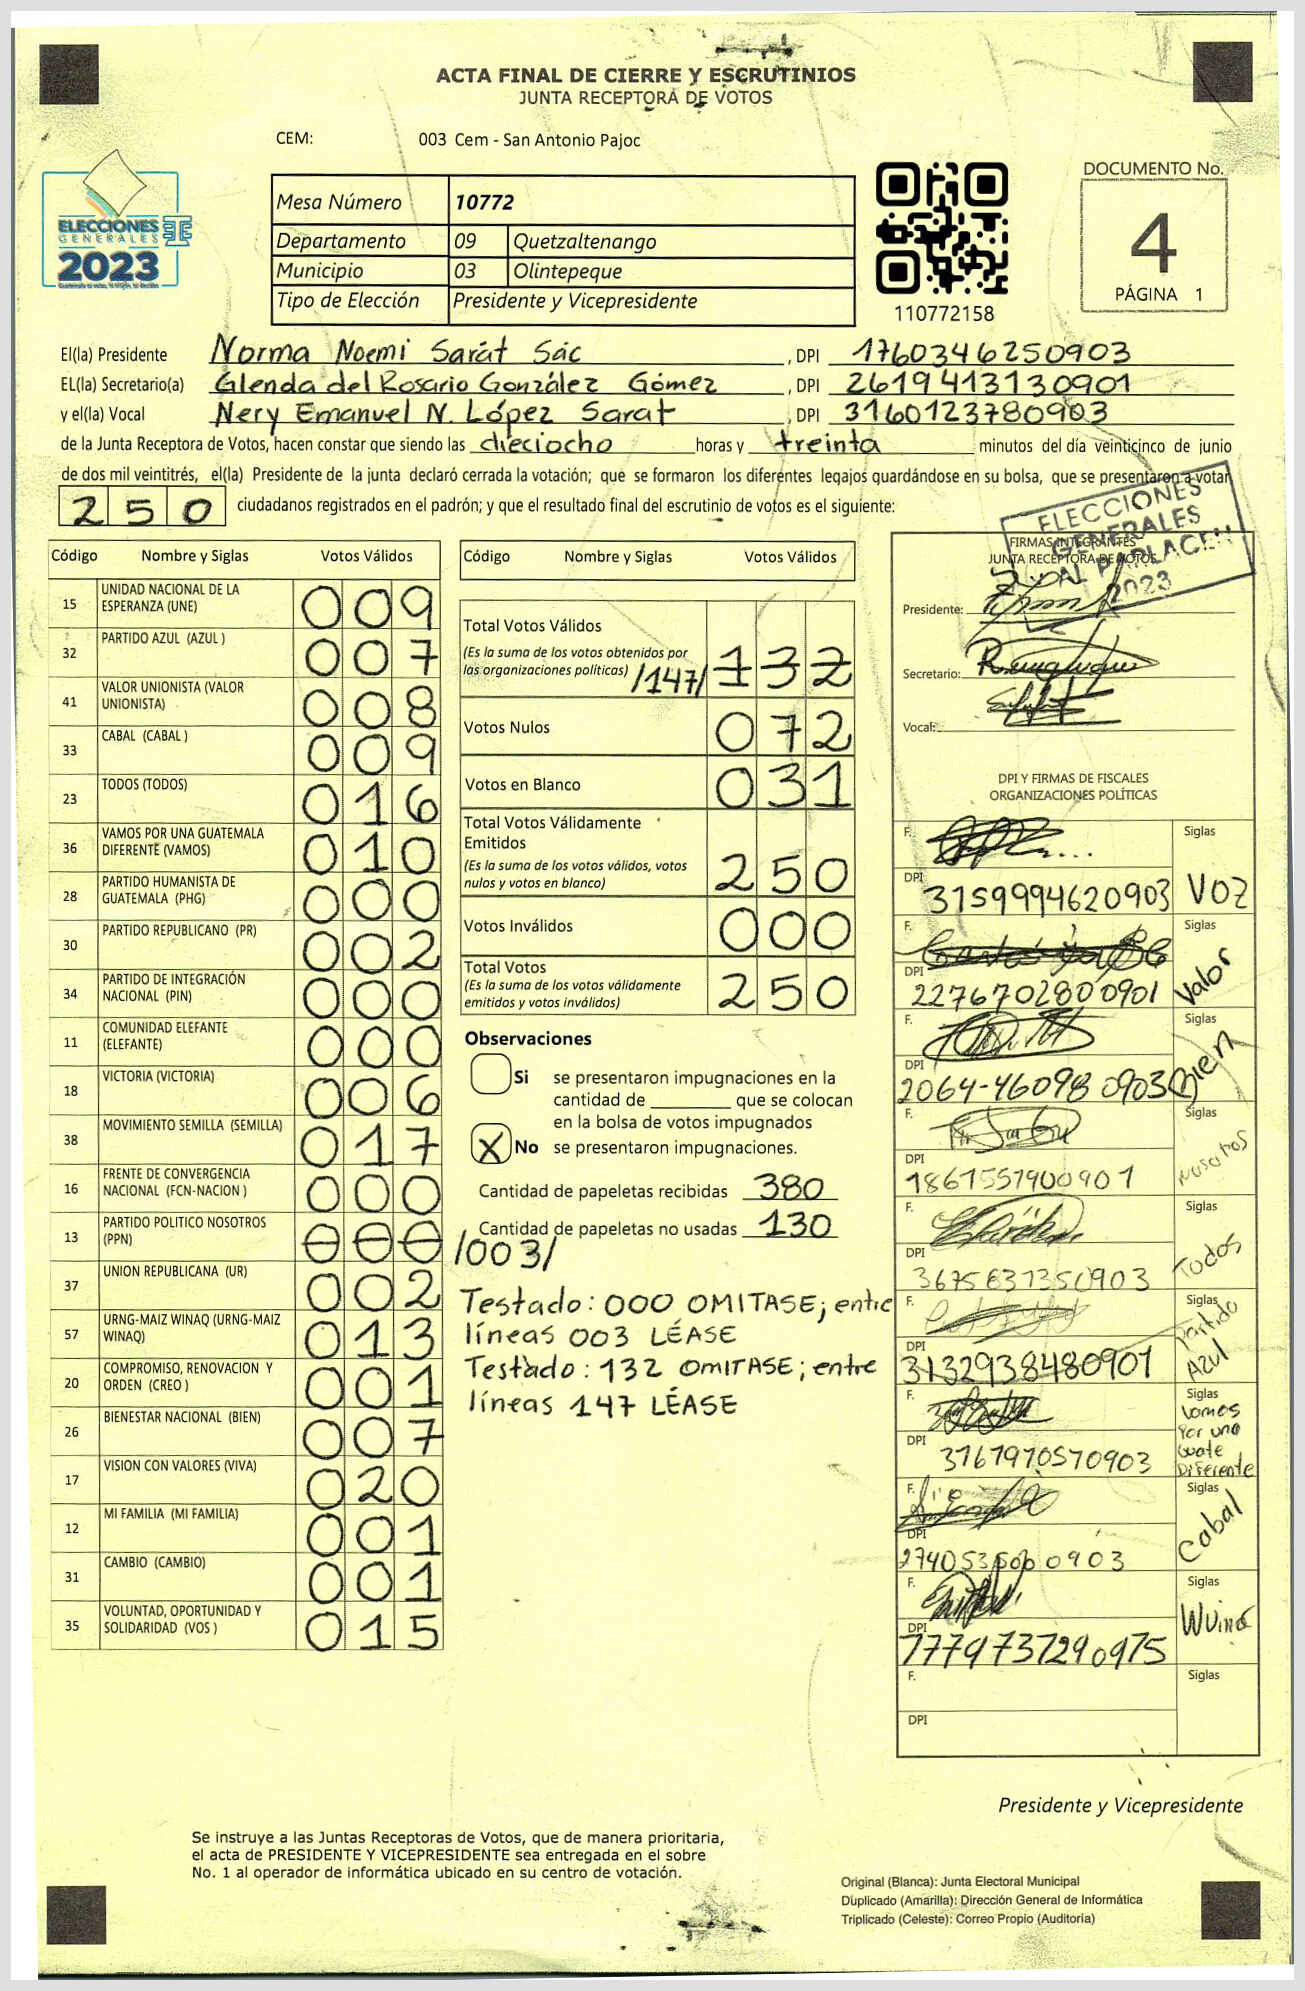 ACTA FINAL DE CIERRE Y ESCRUTINIOS
JUNTA RECEPTORA DE VOTOS
CEM: 003 Cem - San Antonio Pajoc
ELECCIONES
GENERALES
2023
Mesa Número 10772
Departamento 09 Quetzaltenango
Municipio 03 Olintepeque
Tipo de Elección Presidente y Vicepresidente
110772158
DOCUMENTO No.
4
PÁGINA 1
El(la) Presidente Norma Noemi Sarát Sác , DPI 1760346250903
EL(la) Secretario(a) Glenda del Rosario González Gómez , DPI 2619413130901
y el(la) Vocal Nery Emanuel N. López Sarat , DPI 3160123780903
de la Junta Receptora de Votos, hacen constar que siendo las dieciocho horas y treinta minutos del día veinticinco de junio
de dos mil veintitrés, el(la) Presidente de la junta declaró cerrada la votación; que se formaron los diferentes legajos guardándose en su bolsa, que se presentaron a votar
250 ciudadanos registrados en el padrón; y que el resultado final del escrutinio de votos es el siguiente:
Código Nombre y Siglas Votos Válidos
15 UNIDAD NACIONAL DE LA ESPERANZA (UNE) 009
32 PARTIDO AZUL (AZUL ) 007
41 VALOR UNIONISTA (VALOR UNIONISTA) 008
33 CABAL (CABAL ) 009
23 TODOS (TODOS) 016
36 VAMOS POR UNA GUATEMALA DIFERENTE (VAMOS) 010
28 PARTIDO HUMANISTA DE GUATEMALA (PHG) 000
30 PARTIDO REPUBLICANO (PR) 002
34 PARTIDO DE INTEGRACIÓN NACIONAL (PIN) 000
11 COMUNIDAD ELEFANTE (ELEFANTE) 000
18 VICTORIA (VICTORIA) 006
38 MOVIMIENTO SEMILLA (SEMILLA) 017
16 FRENTE DE CONVERGENCIA NACIONAL (FCN-NACION ) 000
13 PARTIDO POLITICO NOSOTROS (PPN) 000 /003/
37 UNION REPUBLICANA (UR) 002
57 URNG-MAIZ WINAQ (URNG-MAIZ WINAQ) 013
20 COMPROMISO, RENOVACION Y ORDEN (CREO ) 001
26 BIENESTAR NACIONAL (BIEN) 007
17 VISION CON VALORES (VIVA) 020
12 MI FAMILIA (MI FAMILIA) 001
31 CAMBIO (CAMBIO) 001
35 VOLUNTAD, OPORTUNIDAD Y SOLIDARIDAD (VOS ) 015
Código Nombre y Siglas Votos Válidos
Total Votos Válidos
(Es la suma de los votos obtenidos por
las organizaciones políticas) /147/ 132
Votos Nulos 072
Votos en Blanco 031
Total Votos Válidamente
Emitidos
(Es la suma de los votos válidos, votos
nulos y votos en blanco) 250
Votos Inválidos 000
Total Votos
(Es la suma de los votos válidamente
emitidos y votos inválidos) 250
Observaciones
Si se presentaron impugnaciones en la
cantidad de ________ que se colocan
en la bolsa de votos impugnados
X No se presentaron impugnaciones.
Cantidad de papeletas recibidas 380
Cantidad de papeletas no usadas 130
Testado: 000 OMITASE; entre
líneas 003 LÉASE
Testado: 132 OMITASE; entre
líneas 147 LÉASE
ELECCIONES
GENERALES
Y AL PARLACEN
2023
FIRMAS INTEGRANTES
JUNTA RECEPTORA DE VOTOS
Presidente:
Secretario:
Vocal:
DPI Y FIRMAS DE FISCALES
ORGANIZACIONES POLÍTICAS
F. Siglas
DPI 3159994620903 VOZ
F. Siglas
DPI 2276702800901 Valor
F. Siglas
DPI 2064-46098 0903 Bien
F. Siglas
DPI 1861557900901 Nosotros
F. Siglas
DPI 3675637350903 Todos
F. Siglas
DPI 3132938480901 Partido Azul
F. Siglas
DPI 3167970570903 Vamos Por una Guate Diferente
F. Siglas
DPI 0903 Cabal
F. Siglas
DPI 7779737290975
F. Siglas
DPI
Presidente y Vicepresidente
Se instruye a las Juntas Receptoras de Votos, que de manera prioritaria,
el acta de PRESIDENTE Y VICEPRESIDENTE sea entregada en el sobre
No. 1 al operador de informática ubicado en su centro de votación.
Original (Blanca): Junta Electoral Municipal
Duplicado (Amarilla): Dirección General de Informática
Triplicado (Celeste): Correo Propio (Auditoría)